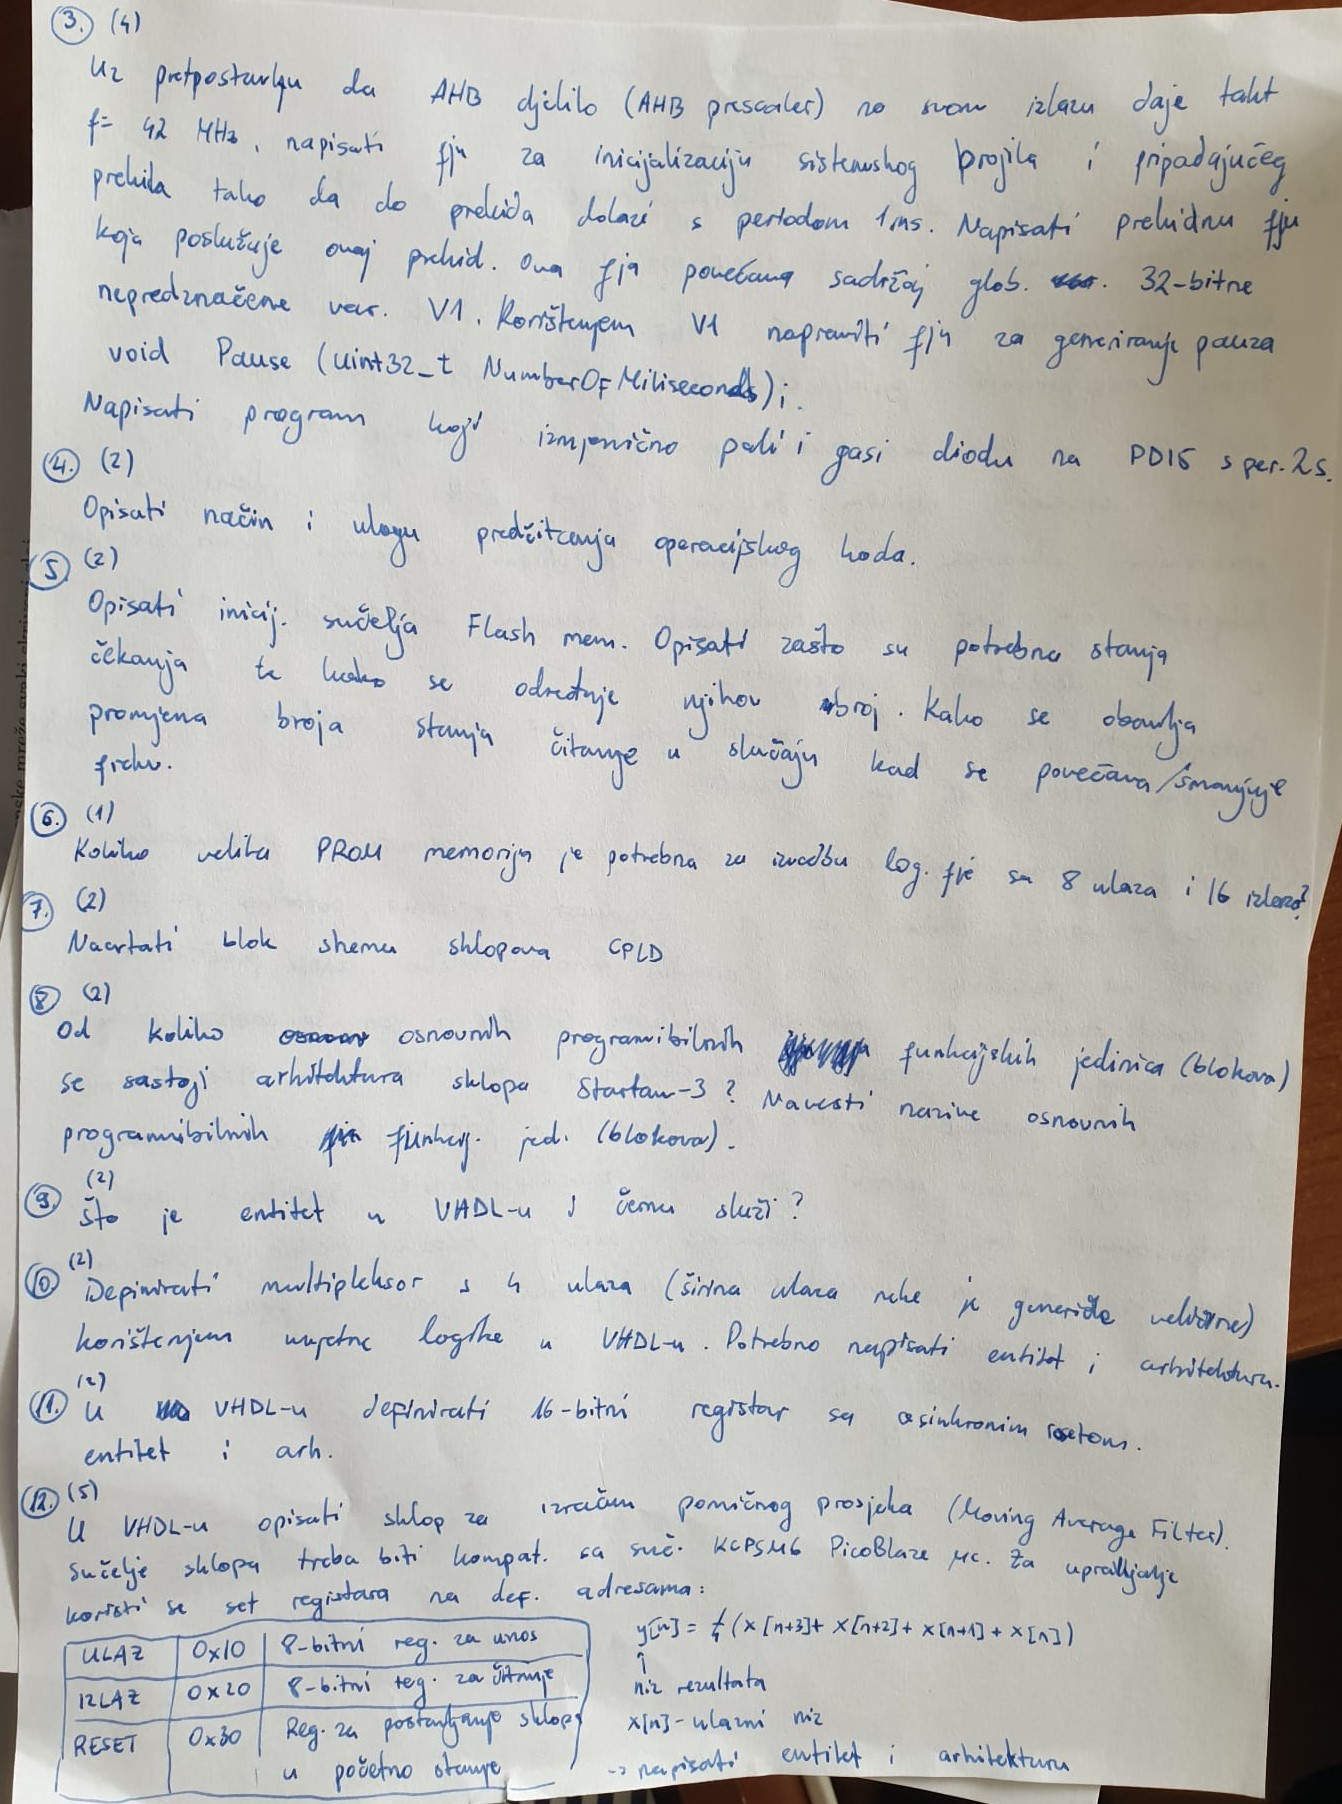 3. (4)
Uz pretpostavku da AHB djelilo (AHB prescaler) na svom izlazu daje takt
f= 42 MHz, napisati fju za inicijalizaciju sistemskog brojila i pripadajućeg
prekida tako da do prekida dolazi s periodom 1ms. Napisati prekidnu fju
koja poslužuje ovaj prekid. Ova fja povećava sadržaj glob. 32-bitne
nepredznačene var. V1. Korištenjem V1 napraviti fju za generiranje pauza
void Pause (uint32_t NumberOfMiliseconds);.
Napisati program koji izmjenično pali i gasi diodu na PD15 s per. 2s.
4. (2)
Opisati način i ulogu predčitanja operacijskog koda.
5. (2)
Opisati inicij. sučelja Flash mem. Opisati zašto su potrebna stanja
čekanja te kako se određuje njihov broj. Kako se obavlja
promjena broja stanja čitanje u slučaju kad se povećava/smanjuje
frekv.
6. (1)
Koliko velika PROM memorija je potrebna za izvedbu log. fje sa 8 ulaza i 16 izlaza?
7. (2)
Nacrtati blok shemu sklopova CPLD
8 (2)
Od koliko osnovnih programibilnih funkcijskih jedinica (blokova)
se sastoji arhitektura sklopa Startan-3? Navesti nazive osnovnih
programibilnih funkcij. jed. (blokova).
9. (2)
Što je entitet u VHDL-u i čemu služi?
10. (2)
Definirati multipleksor s 4 ulaza (širina ulaza neke je generičke veličine)
korištenjem uvjetne logike u VHDL-u. Potrebno napisati entitet i arhitekturu.
11. (2)
U VHDL-u definirati 16-bitni registar sa asinkronim resetom.
entitet i arh.
12. (5)
U VHDL-u opisati sklop za izračun pomičnog prosjeka (Moving Average Filter).
Sučelje sklopa treba biti kompat. sa suč. KCPSM6 PicoBlaze μC. Za upravljanje
koristi se set registara na def. adresama:
ULAZ 0x10 8-bitni reg. za unos
IZLAZ 0x20 8-bitni reg. za čitanje
RESET 0x30 Reg. za postavljanje sklopa
u početno stanje
y[n] = 1/4 (x[n+3]+ x[n+2]+ x[n+1]+ x[n])
↑
niz rezultata
x[n]- ulazni niz
→ napisati entitet i arhitekturu